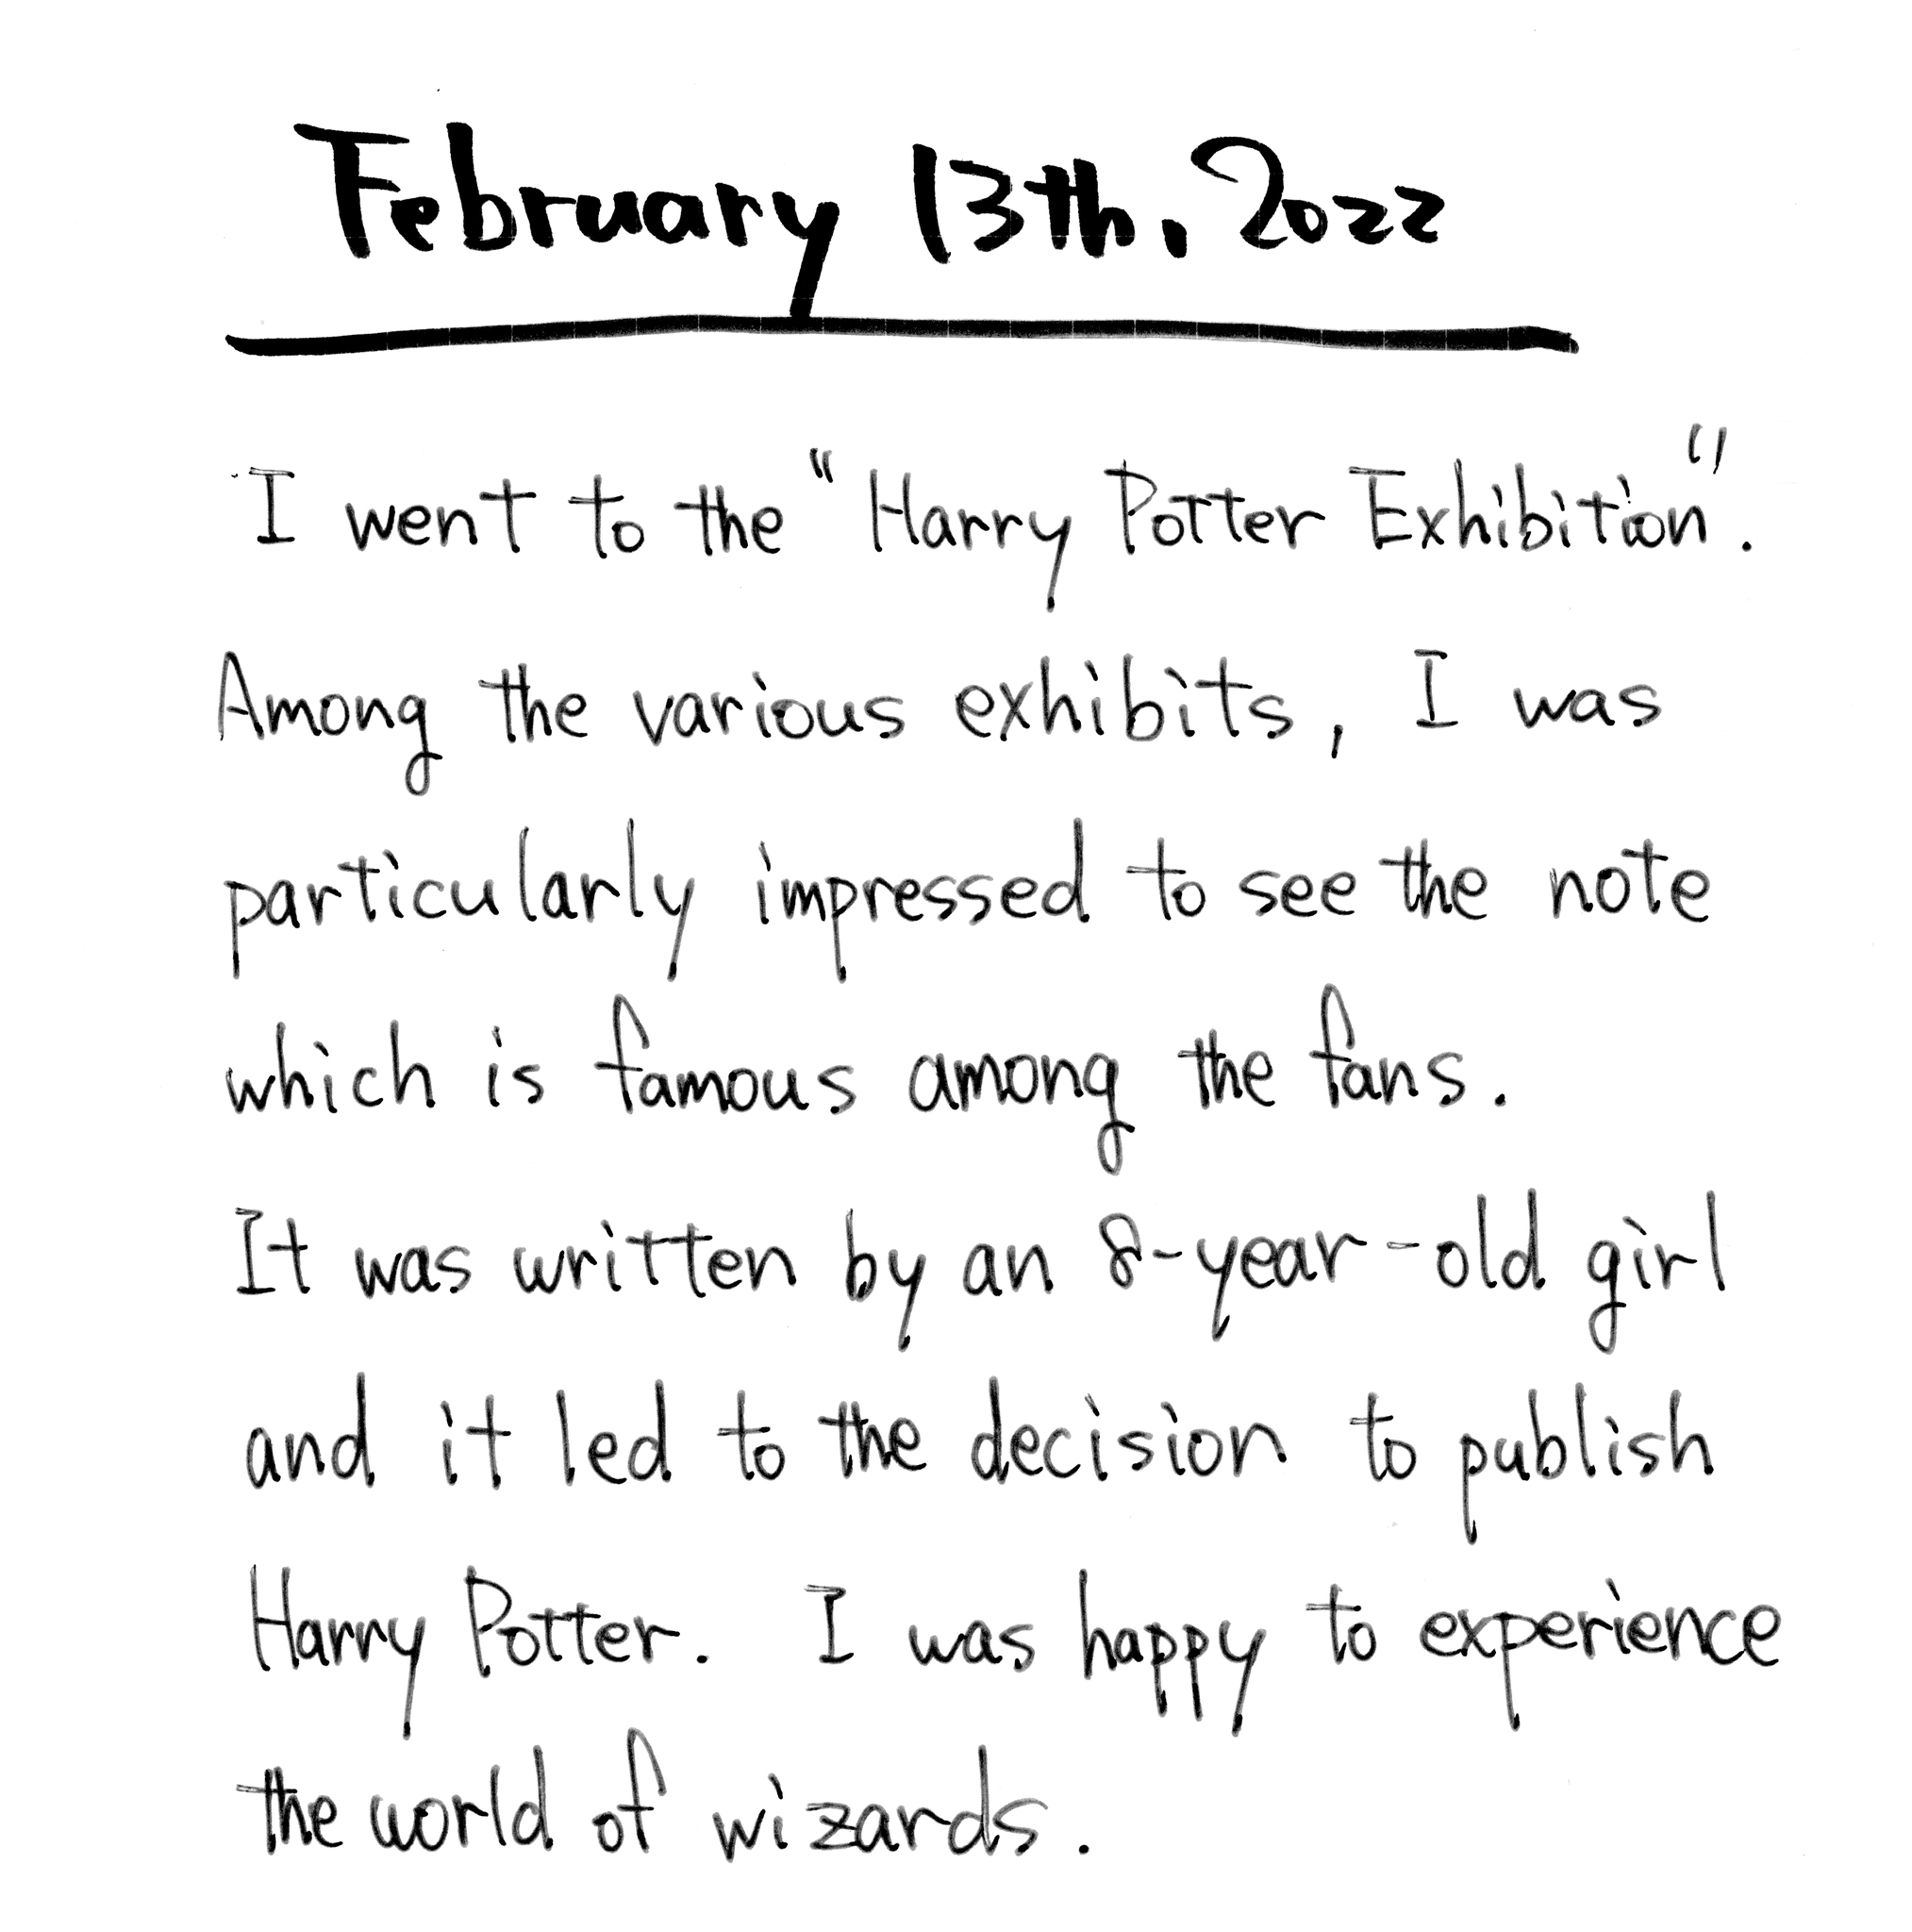 February 13th, 2022
I went to the "Harry Potter Exhibition".
Among the various exhibits, I was
particularly impressed to see the note
which is famous among the fans.
It was written by an 8-year-old girl
and it led to the decision to publish
Harry Potter. I was happy to experience
the world of wizards.